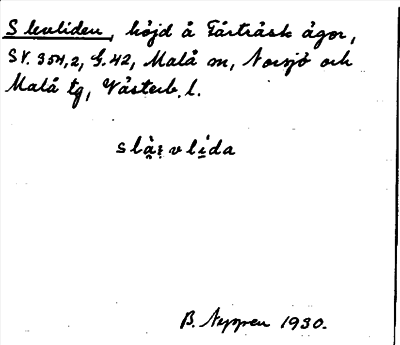 Slevliden, höjd å Fårträsk ägor,
SV. 354,2, G.42, Malå sn, Norsjö och
Malå tg, Västerb. l.
slὰ̣ːvli̱da
B. Nyppen 1930.